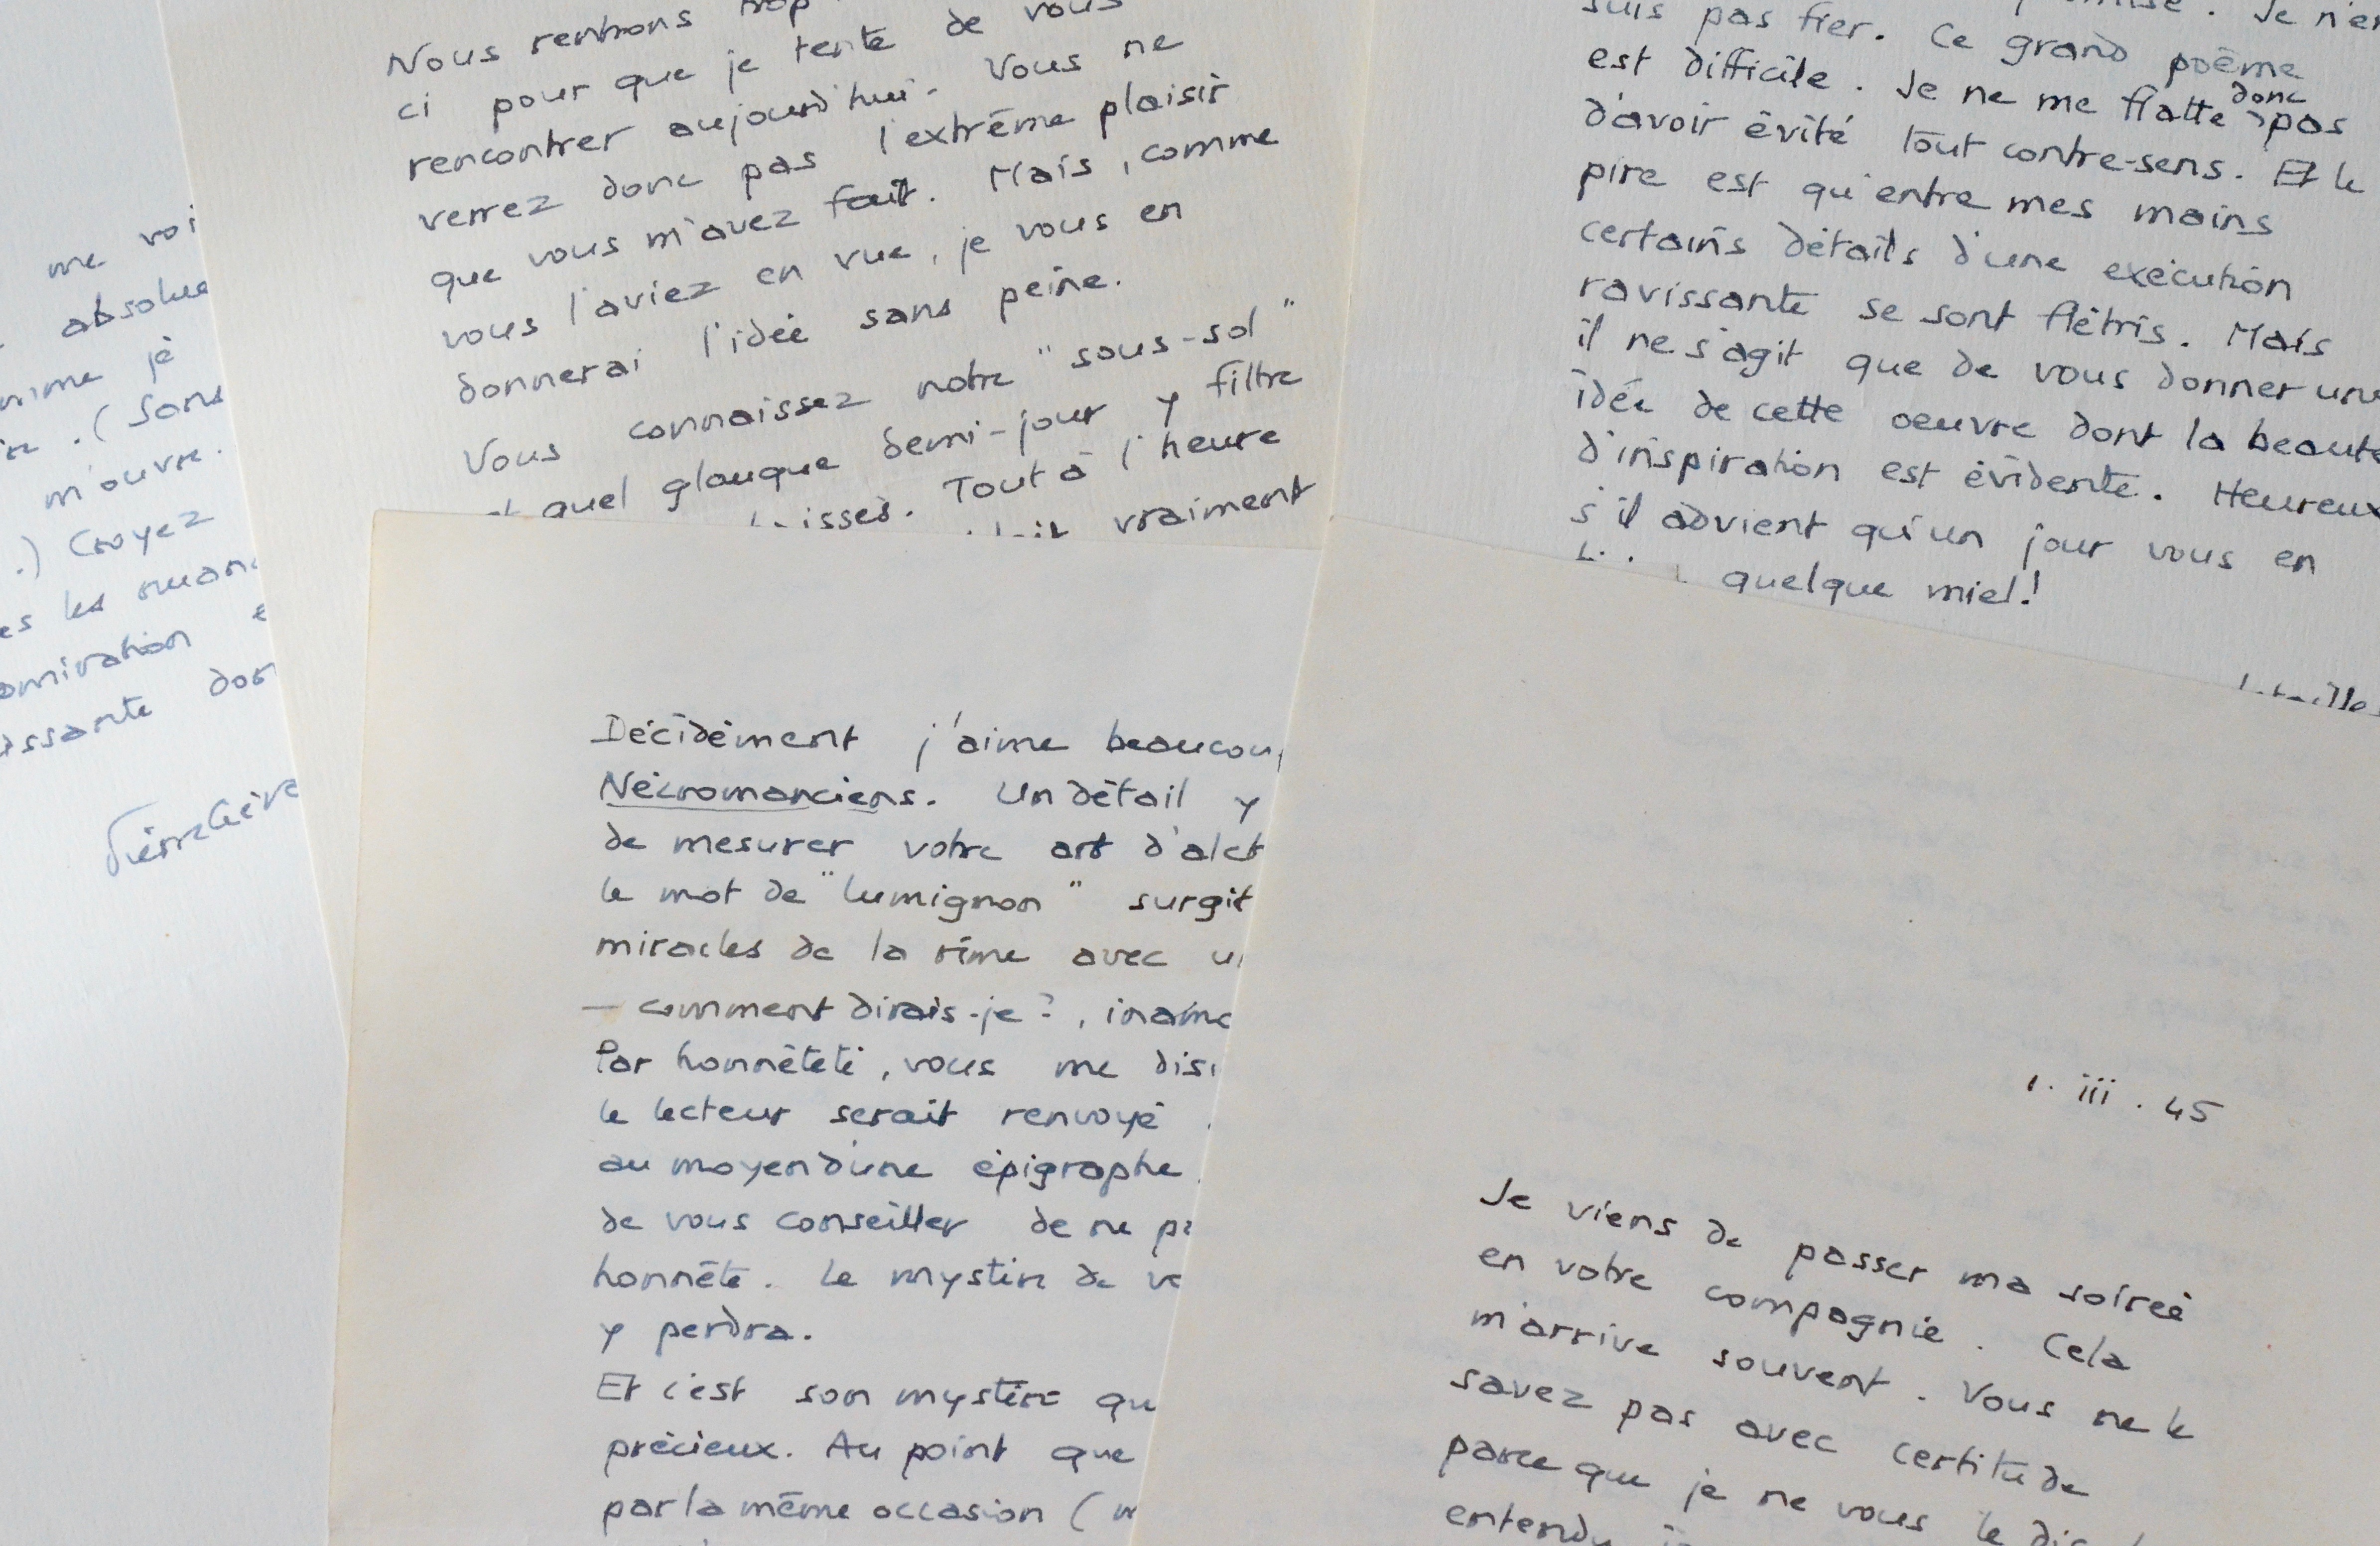 me
absolue
je
. (Sans
m'ouvre.
.) Croyez
es les
dont
Nous rentrons trop
ci pour que je tente de vous
rencontrer aujourd'hui. Vous ne
verrez donc pas l'extrême plaisir
que vous m'avez fait. Mais, comme
vous l'aviez en vue, je vous en
donnerai l'idée sans peine.
Vous connaissez notre "sous-sol"
et quel glauque demi-jour y filtre
Tout à l'heure
vraiment
suis pas fier. Ce grand poème
est difficile. Je ne me flatte donc pas
d'avoir évité tout contre-sens. Et le
pire est qu'entre mes mains
certains détails d'une exécution
ravissante se sont flétris. Mais
il ne s'agit que de vous donner une
idée de cette oeuvre dont la beauté
d'inspiration est évidente. Heureux
s'il advient qu'un jour vous en
quelque miel!
Décidément j'aime beaucoup
Nécromanciens. Un détail y
de mesurer votre art d'alch
le mot de "lumignon" surgit
miracles de la rime avec
— comment dirais-je?,
Par honnêteté, vous me
le lecteur serait renvoyé
au moyen d'une épigraphe
de vous conseiller de ne
honnête. Le mystère de
y perdra.
Et c'est son mystère qu
précieux. Au point que
par la même occasion (
1. iii. 45
Je viens de passer ma soirée
en votre compagnie. Cela
m'arrive souvent. Vous ne le
savez pas avec certitude
parce que je ne vous le